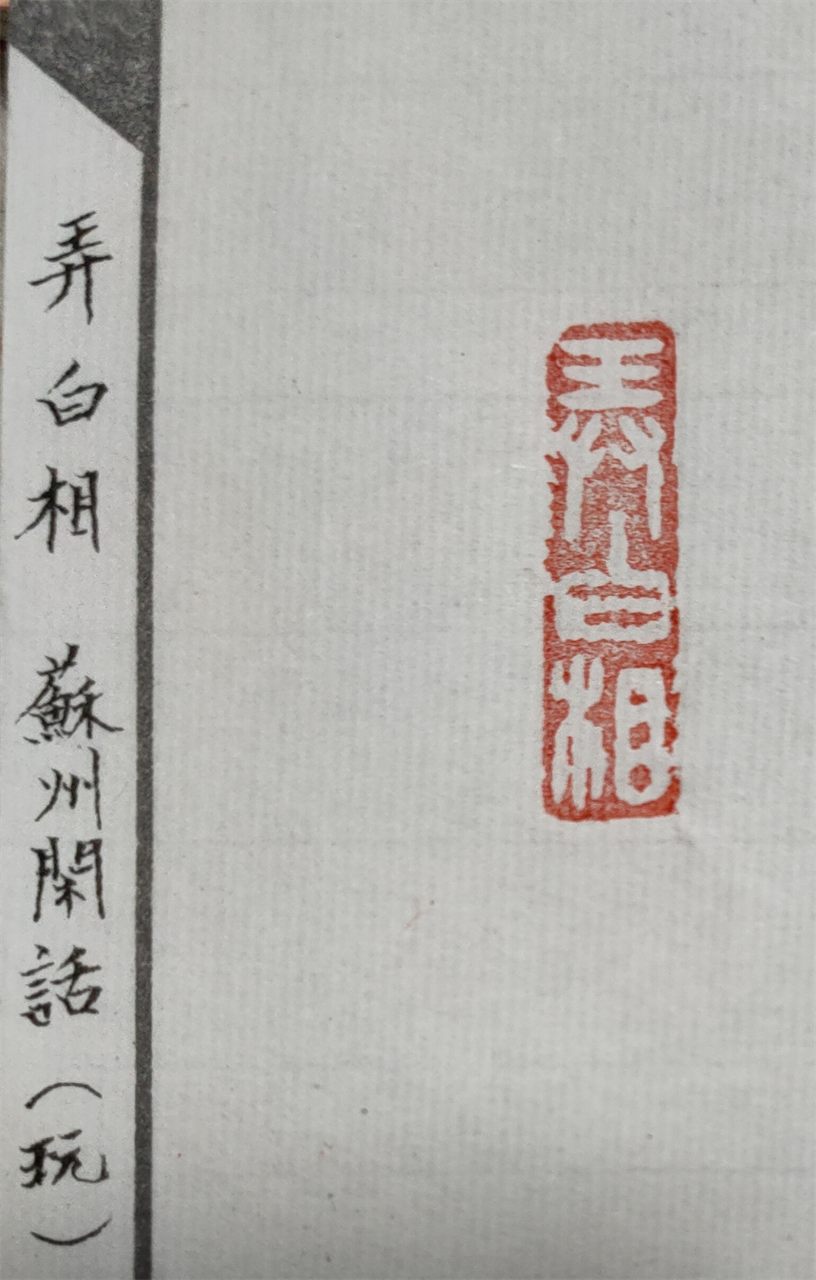 弄白相 蘇州閑話（玩）
弄白相